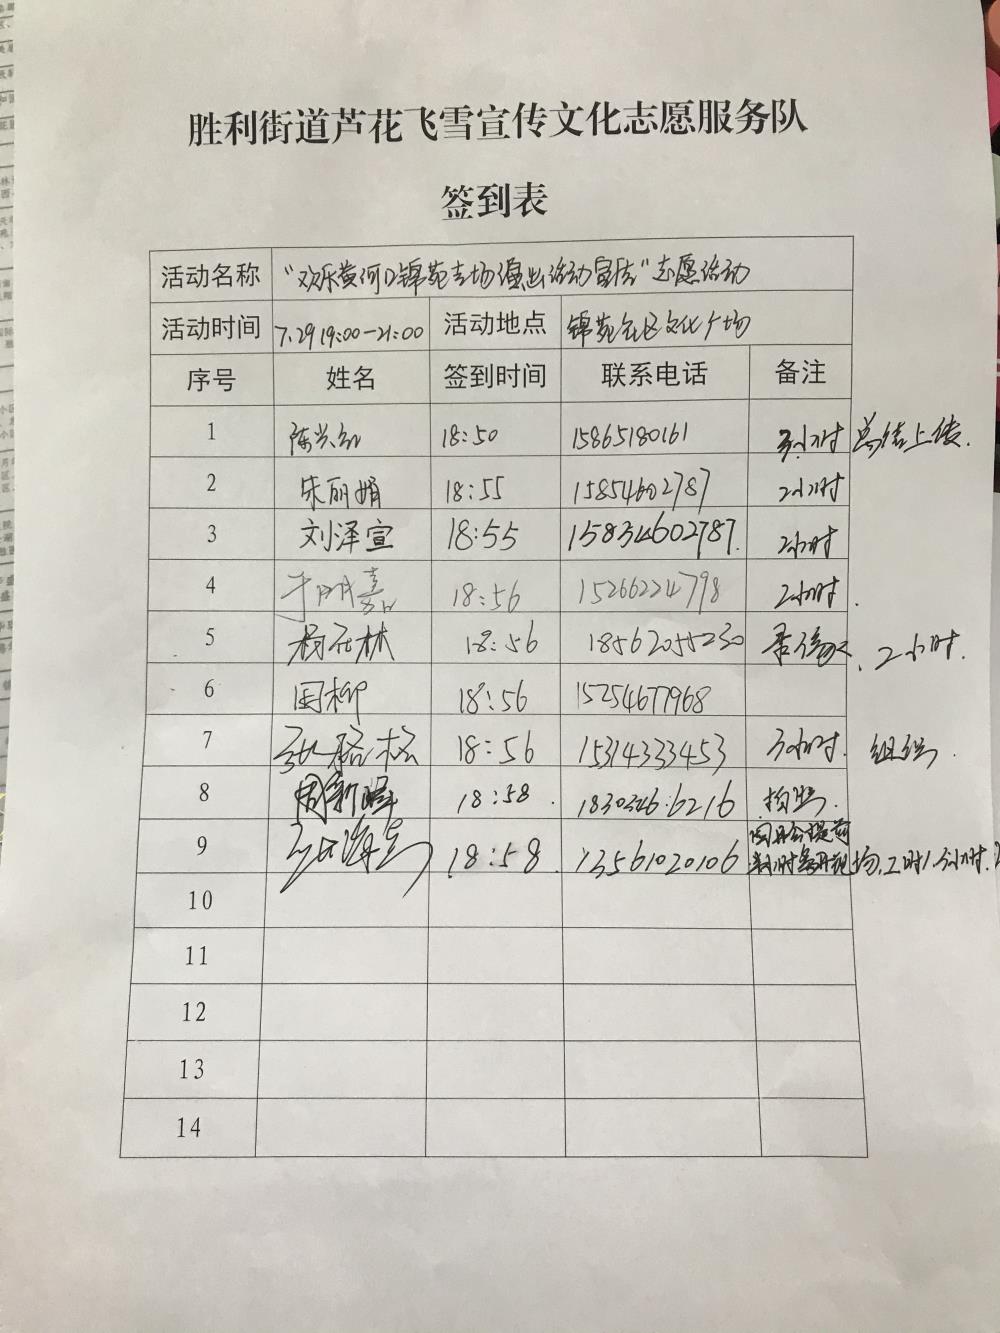 胜利街道芦花飞雪宣传文化志愿服务队
签到表
活动名称 "欢乐黄河口锦苑专场演出活动宣传"志愿活动
活动时间 7.29 19:00-21:00 活动地点 锦苑社区文化广场
序号 姓名 签到时间 联系电话 备注
1 陈兴红 18:50 15865180161 3小时 总结上传.
2 朱丽娟 18:55 15854602787 2小时
3 刘泽宣 18:55 15834602787. 2小时
4 于明嘉 18:56 15266224798 2小时.
5 杨元林 18:56 18562055230 2小时.
6 周柳 18:56 15254677968
7 18:56 15314333453 3小时. 组织.
8 周新 18:58. 1830346:6216 拍照.
9 张海 18:58. 13561020106
10
11
12
13
14